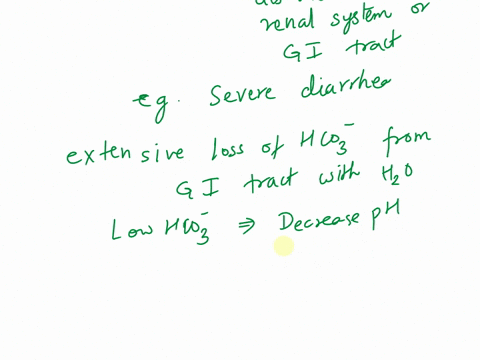 renal system or
GI tract
eg. Severe diarrhea
extensive loss of HCO₃⁻ from
GI tract with H₂O
Low HCO₃⁻ ⇒ Decrease pH